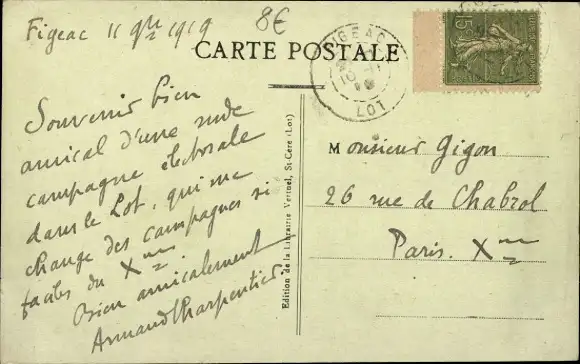 Figeac 11 9bre 1919
8€
CARTE POSTALE
FIGEAC
LOT
15
Souvenir bien
amical d'une rude
campagne électorale
dans le Lot, qui me
change des campagnes si
faciles du Xme.
Bien amicalement
Armand Charpentier
Edition de la Librairie Vertuel, St-Céré (Lot)
Monsieur Gigon
26 rue de Chabrol
Paris. Xme